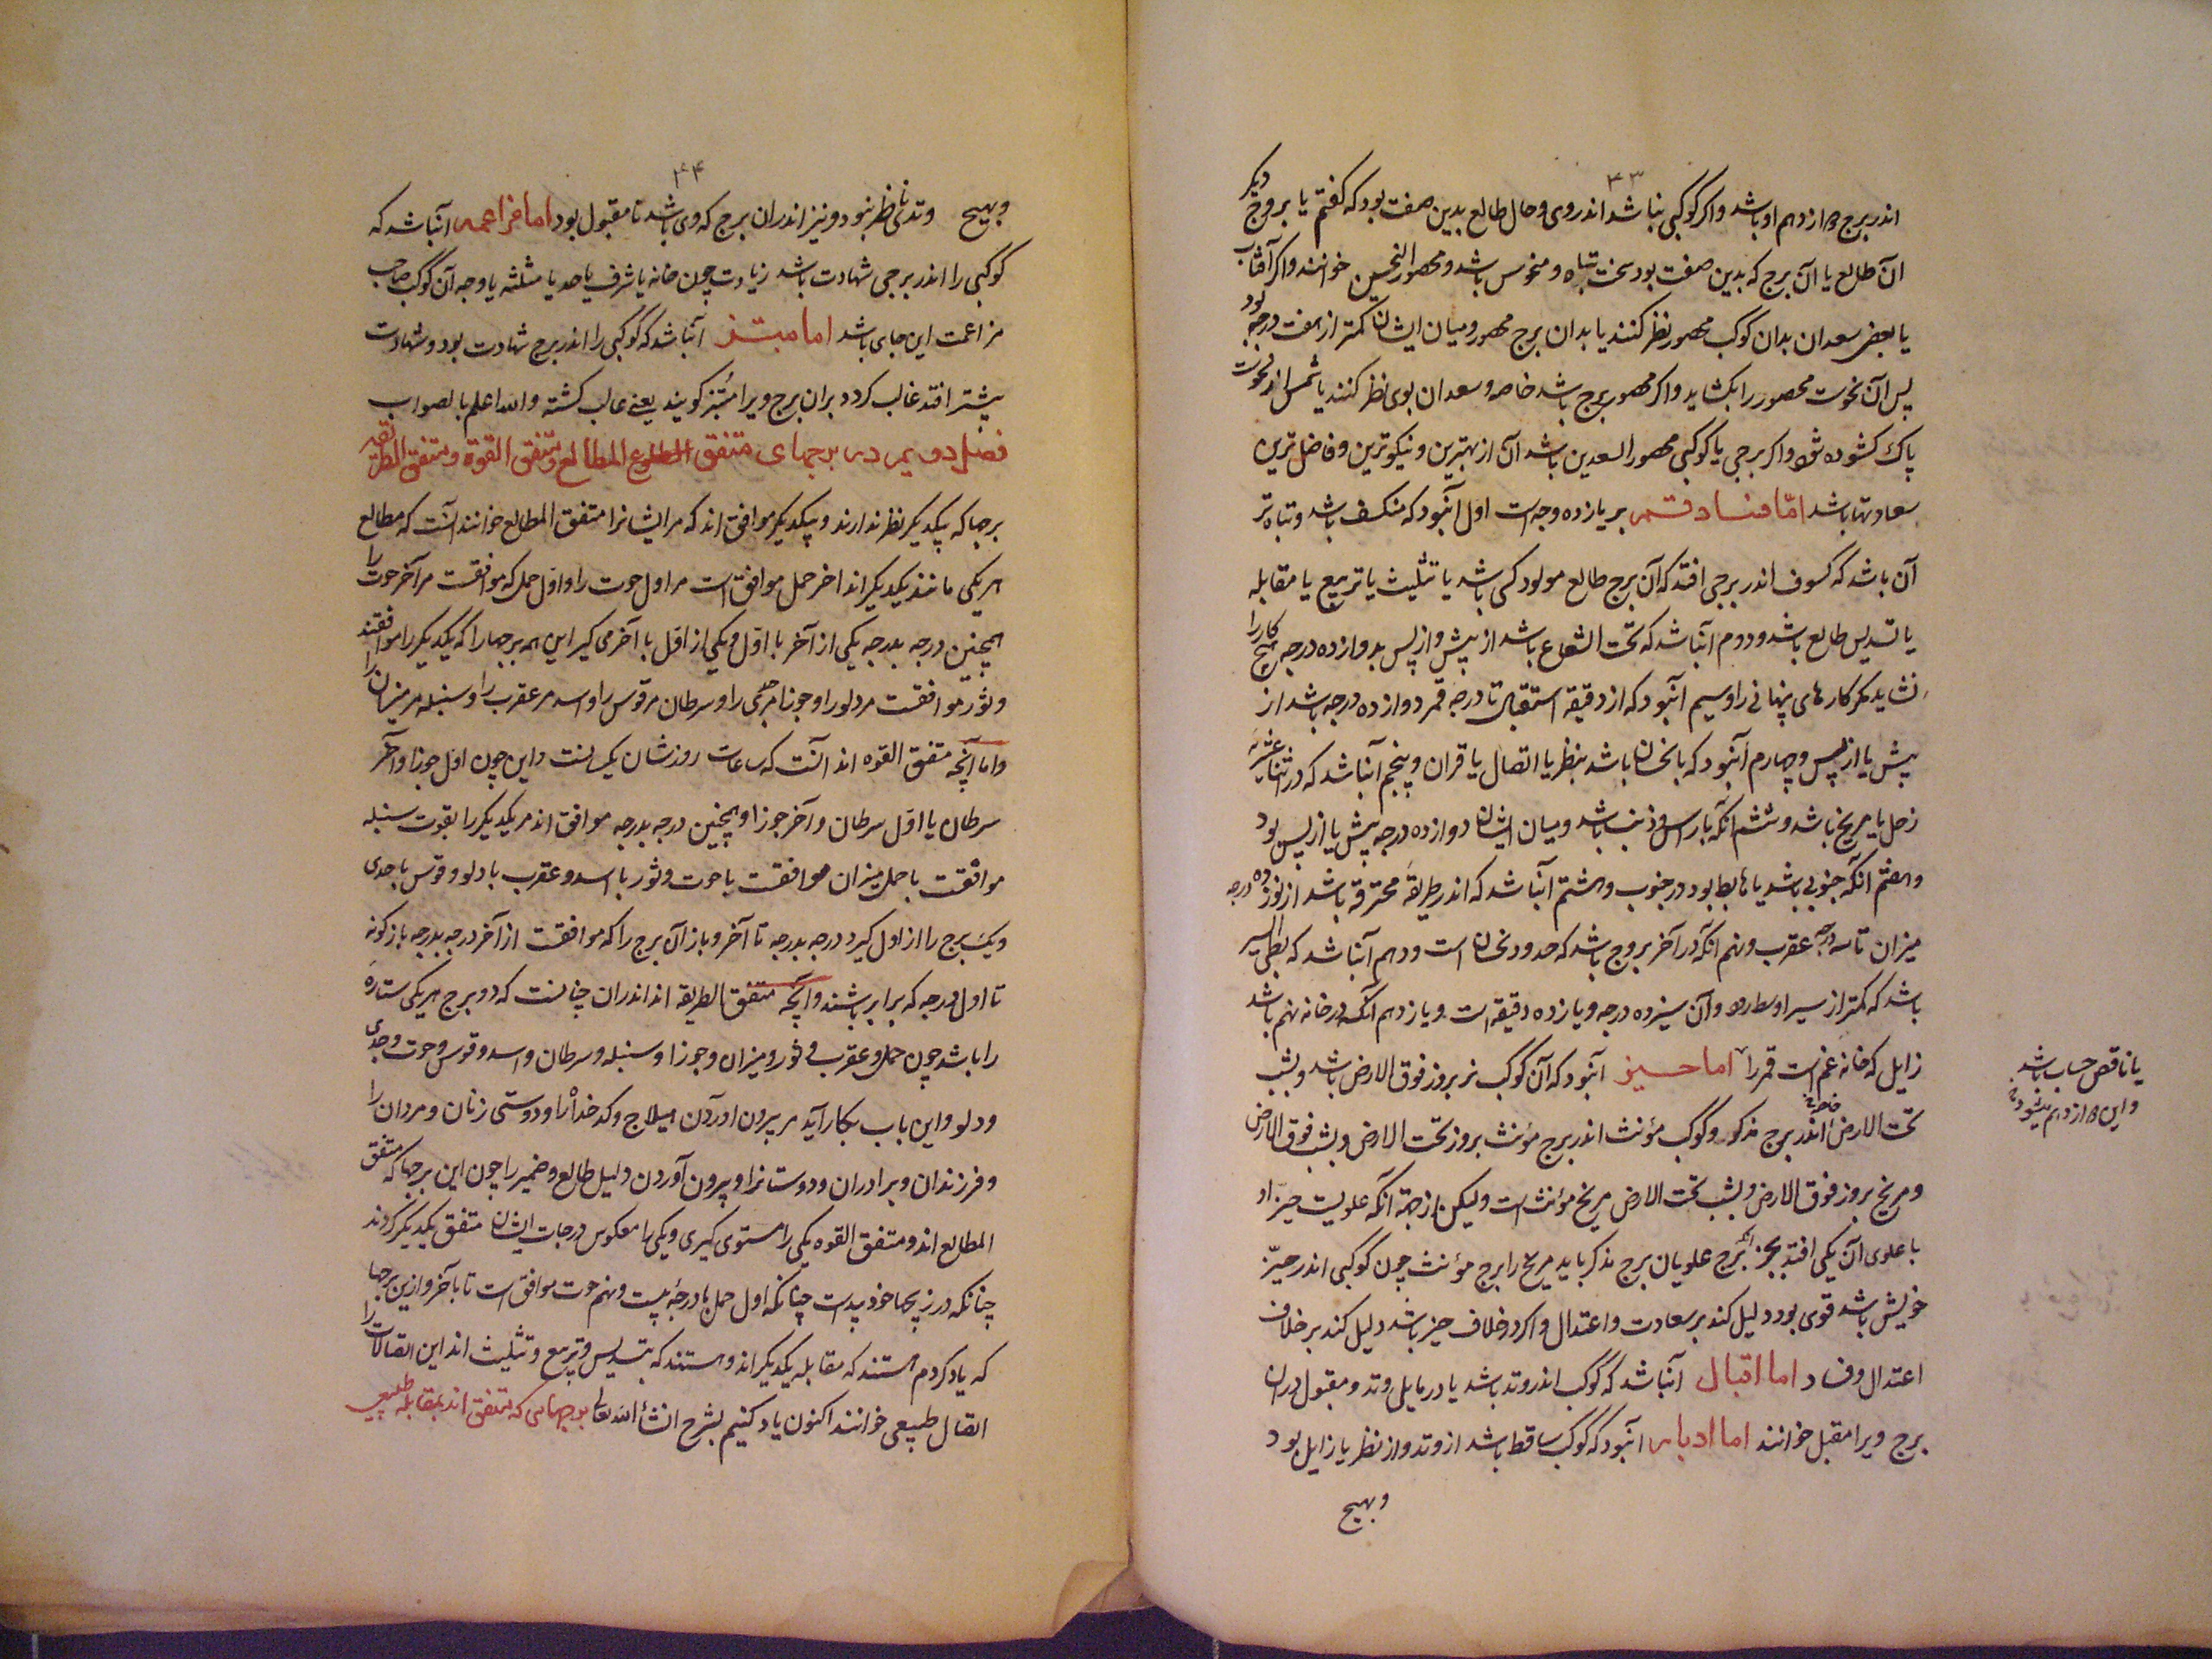 ۴۳
اندر برج دوازدهم او باشد و اکر کوکبی نباشد اندروی و حال طالع بدین صفت بود که کفتم یا بروج دیکر
ان طالع یا آن برج که بدین صفت بود سخت تباه و منحوس باشد و محصور النحسین خوانند و اکر آفتاب
یا بعضی سعدان بدان کوکب محصور نظر کنند یا بدان برج محصور و میان ایشان کمتر از هفت درجه بود
پس آن نحوست محصور را بکشاید و اکر محصور برج باشد خاصه و سعدان بوی نظر کنند یا شمس از نحوست
پاک کشوده شود و اکر برجی یا کوکبی محصور السعدین باشد آن از بهترین و نیکوترین و فاضل ترین
سعادتها باشد امّا فساد قمر بر یازده وجه است اول آنبود که منکسف باشد و تباه تر
آن باشد که کسوف اندر برجی افتد که آن برج طالع مولود کسی باشد یا تثلیث یا تربیع یا مقابله
یا تسدیس طالع باشد و دوم آنباشد که تحت الشعاع باشد از پیش و از پس بدوازده درجه هیچ کار را
نشاید مکر کارهای پنهانی را و سیم آنبود که از دقیقه استقبال تا درجه قمر دوازده درجه باشد از
پیش یا از پس و چهارم آنبود که با نحسان باشد بنظر یا اتصال یا قران و پنجم آنباشد که در اثنا عشریه
زحل یا مریخ باشد و ششم آنکه با راس و ذنب باشد و میان ایشان دوازده درجه پیش یا از پس بود
و هفتم آنکه جنوبی باشد یا هابط بود در جنوب و هشتم آنباشد که اندر طریقه محترقه باشد از نوزده درجه
میزان تا سه درجه عقرب و نهم آنکه در آخر بروج باشد که حدود نحسان است و دهم آنباشد که بطی السیر
باشد که کمتر از سیر اوسط رود و آن سیزده درجه و یازده دقیقه است و یازدهم آنکه در خانه نهم باشد
زایل که خانه غم است قمر را اما حیز آنبود که آن کوکب نر بروز فوق الارض باشد و بشب
تحت الارض خاصه اندر برج مذکور و کوکب مؤنث اندر برج مؤنث بروز تحت الارض و بشب فوق الارض
و مریخ بروز فوق الارض و بشب تحت الارض مریخ مؤنث است ولیکن از جهة آنکه علویست حیز او
با علوی آن یکی افتد بجز انکه برج علویان برج مذکر باید مریخ را برج مؤنث چون کوکبی اندر حیّز
خویش باشد قوی بود دلیل کند بر سعادت و اعتدال و اکر در خلاف حیز باشد دلیل کند بر خلاف
اعتدال و فساد اما اقبال آنباشد که کوکب اندر وتد باشد یا در مایل وتد و مقبول در ان
برج ویرا مقبل خوانند اما ادبار آنبود که کوکب ساقط باشد از وتد و از نظر یا زایل بود
و بهیچ
یا ناقص حساب باشد
و این دوازدهم میشود
۴۴
و بهیچ وتدی ناظر نبود و نیز اندران برج که وی باشد نا مقبول بود اما مزاعمه آنباشد که
کوکبی را اندر برجی شهادت باشد زیادت چون خانه یا شرف یا حد یا مثلثه یا وجه آن کوکب صاحب
مزاعمت این جای باشد اما مبتز آنباشد که کوکبی را اندر برج شهادت بود و شهادت
بیشتر افتد غالب کردد بران برج ویرا مبتز کویند یعنی غالب کشته والله اعلم بالصواب
فصل دویم در برجهای متفق المطالع و متفق القوة و متفق الطریقه
برجها که بیکدیکر نظر ندارند و بیکدیکر موافق اند که مر ایشانرا متفق المطالع خوانند آنست که مطالع
هر یکی مانند یکدیکر اند اخر حمل موافق است مر اول حوت را و اوّل حمل که موافقست مر آخر حوت را
همچنین درجه بدرجه یکی از آخر با اوّل و یکی از اوّل با آخر می کیر این همه برجها را که یکدیکر را موافقند
و ثور موافقست مر دلو را و جوزا مر جدی را و سرطان مر قوس را و اسد مر عقرب را و سنبله مر میزان را
و اما آنچه متفق القوه اند آنست که ساعات روزشان یکسانست و این چون اول جوزا و آخر
سرطان یا اوّل سرطان و آخر جوزا و همچنین درجه بدرجه موافق اند مر یکدیکر را بقوت سنبله
موافقست با حمل میزان موافقست با حوت و ثور با اسد و عقرب با دلو و قوس با جدی
و یک برج را از اول کیرد درجه بدرجه تا آخر و باز آن برج را که موافقست از آخر درجه بدرجه بازکونه
تا اول درجه که برابر باشند و آنچه متفق الطریقه اند اندران چنانست که دو برج هر یکی ستاره
را باشد چون حمل و عقرب و ثور و میزان و جوزا و سنبله و سرطان و اسد و قوس و حوت و جدی
و دلو و این باب بکار آید مر بیرون اوردن هیلاج و کدخداه را و دوستی زنان و مردان را
و فرزندان و برادران و دوستانرا و بیرون آوردن دلیل طالع و ضمیر را چون این برجها که متفق
المطالع اند و متفق القوه یکی را مستوی کیری و یکی را معکوس درجات ایشان متفق یکدیکر کردند
چنانکه در زیجها خود پیداست چنانکه اول حمل با درجه بیست و نهم حوت موافق است تا بآخر و ازین برجها
که یاد کردم هستند که مقابله یکدیکر اند و هستند که بتسدیس و تربیع و تثلیث اند این اتصالات را
اتصال طبیعی خوانند اکنون یاد کنیم بشرح انشاء الله تعالی برجهایی که متفق اند بمقابله طبیعی